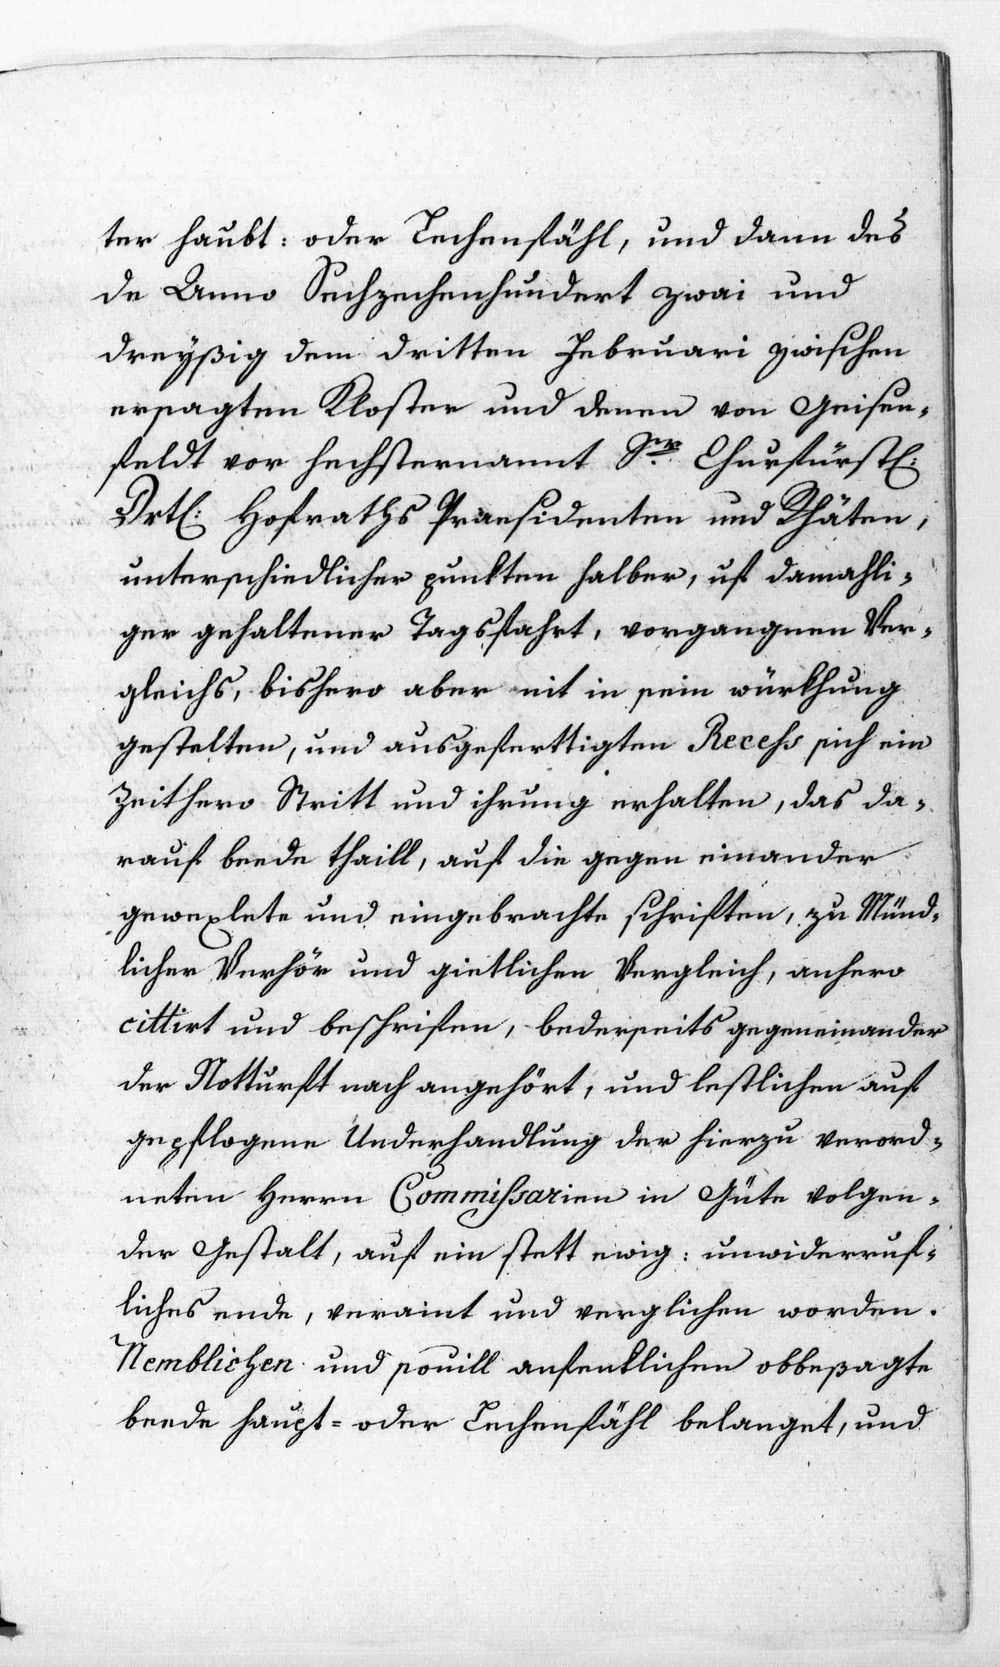 ter haubt: oder Lechenfähl, und dann des
de Anno Sechzechenhundert zwai und
dreyßig dem dritten Februari zwischen
ersagten Kloster und denen von Geisen-
feldt vor hechsternannt Sr. Churfürstl:
Drtl: Hofraths Praesidenten und Rhäten,
unterschiedlicher punkten halber, uf damahli-
ger gehaltener Tagsfahrt, vorgangnen Ver-
gleichs, bishero aber nit in sein würkhung
gestelten, und ausgeferttigten Recess sich ein
Zeithero Stritt und ihrung erhalten, das da-
rauf beede thaill, auf die gegen einander
gewexlete und eingebrachte schriften, zu Münd-
licher Verhör und gietlichen Vergleich, anhero
cittirt und beschrifen, bederseits gegeneinander
der Notturft nach angehört, und lestlichen auf
gepflogene Underhandlung der hierzu verord-
neten Herrn Commissarien in Güte volgen-
der Gestalt, auf ein stett ewig: unwiderruf-
liches ende, veraint und verglichen worden.
Nemblichen und souill anfenklichen obbesagte
beede haupt- oder Lechenfähl belanget, und